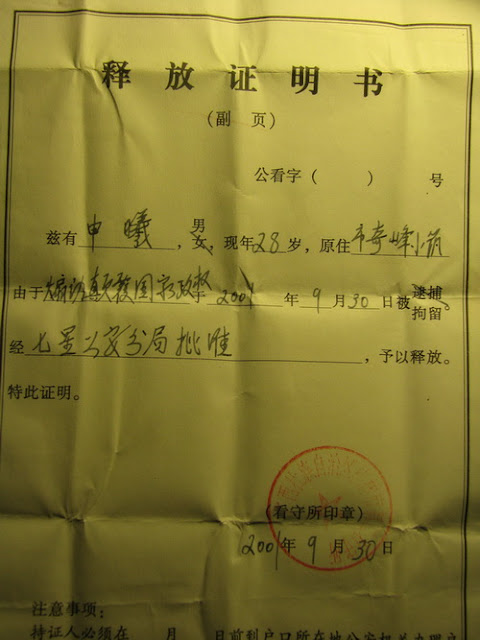 释放证明书
（副 页）
公看字（ ） 号
兹有申曦，男女，现年28岁，原住市奇峰小筑
由于煽动颠覆国家政权于2009年9月30日被逮捕拘留。
经七星公安分局批准，予以释放。
特此证明。
（看守所印章）
2009年9月30日
注意事项：
持证人必须在 月 日前到户口所在地公安机关办理户